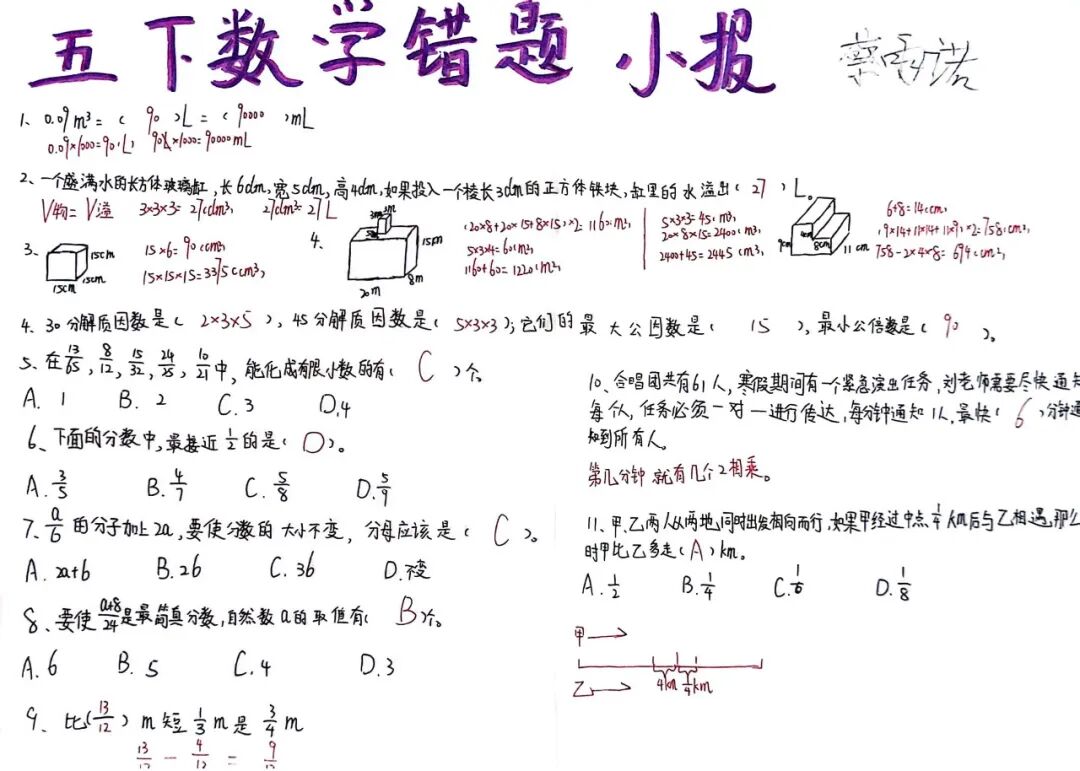 五下数学错题小报
1、0.09m³=( 90 )L=( 90000 )mL
0.09×1000=90(L) 90×1000=90000mL
2、一个盛满水的长方体玻璃缸,长6dm,宽5dm,高4dm,如果投入一个棱长3dm的正方体铁块,缸里的水溢出( 27 )L。
V物=V溢 3×3×3=27(dm³) 27dm³=27L
3、
15cm
15cm
15cm
15×6=90(cm²)
15×15×15=3375(cm³)
4、
3m
5m
15m
8m
20m
(20×8+20×15+8×15)×2=1160(m²)
5×3×4=60(m²)
1160+60=1220(m²)
5×3×3=45(m³)
20×8×15=2400(m³)
2400+45=2445(m³)
9cm
4cm
8cm
11cm
6+8=14(cm)
(9×14+11×14+11×9)×2=758(cm²)
758-2×4×8=694(cm²)
4、30分解质因数是( 2×3×5 ),45分解质因数是( 5×3×3 );它们的最大公因数是( 15 ),最小公倍数是( 90 )。
5、在13/65,8/12,15/32,24/25,10/21中,能化成有限小数的有( C )个。
A. 1 B. 2 C. 3 D. 4
6、下面的分数中,最接近1/2的是( D )。
A. 3/5 B. 4/7 C. 5/8 D. 5/9
7、a/b的分子加上2a,要使分数的大小不变,分母应该是( C )。
A. 2a+b B. 2b C. 3b D.
8、要使a+8/24是最简真分数,自然数a的取值有( B )个。
A. 6 B. 5 C. 4 D. 3
9、比(13/12)m短1/3m是3/4m
13/12 - 4/12 = 9/12
10、合唱团共有61人,寒假期间有一个紧急演出任务,刘老师需要尽快通知
每个人,任务必须一对一进行传达,每分钟通知1人,最快( 6 )分钟通
知到所有人。
第几分钟就有几个2相乘。
11、甲、乙两人从两地同时出发相向而行,如果甲经过中点1/4km后与乙相遇,那么
时甲比乙多走( A )km。
A. 1/2 B. 1/4 C. 1/6 D. 1/8
甲
乙 4km 1/4km